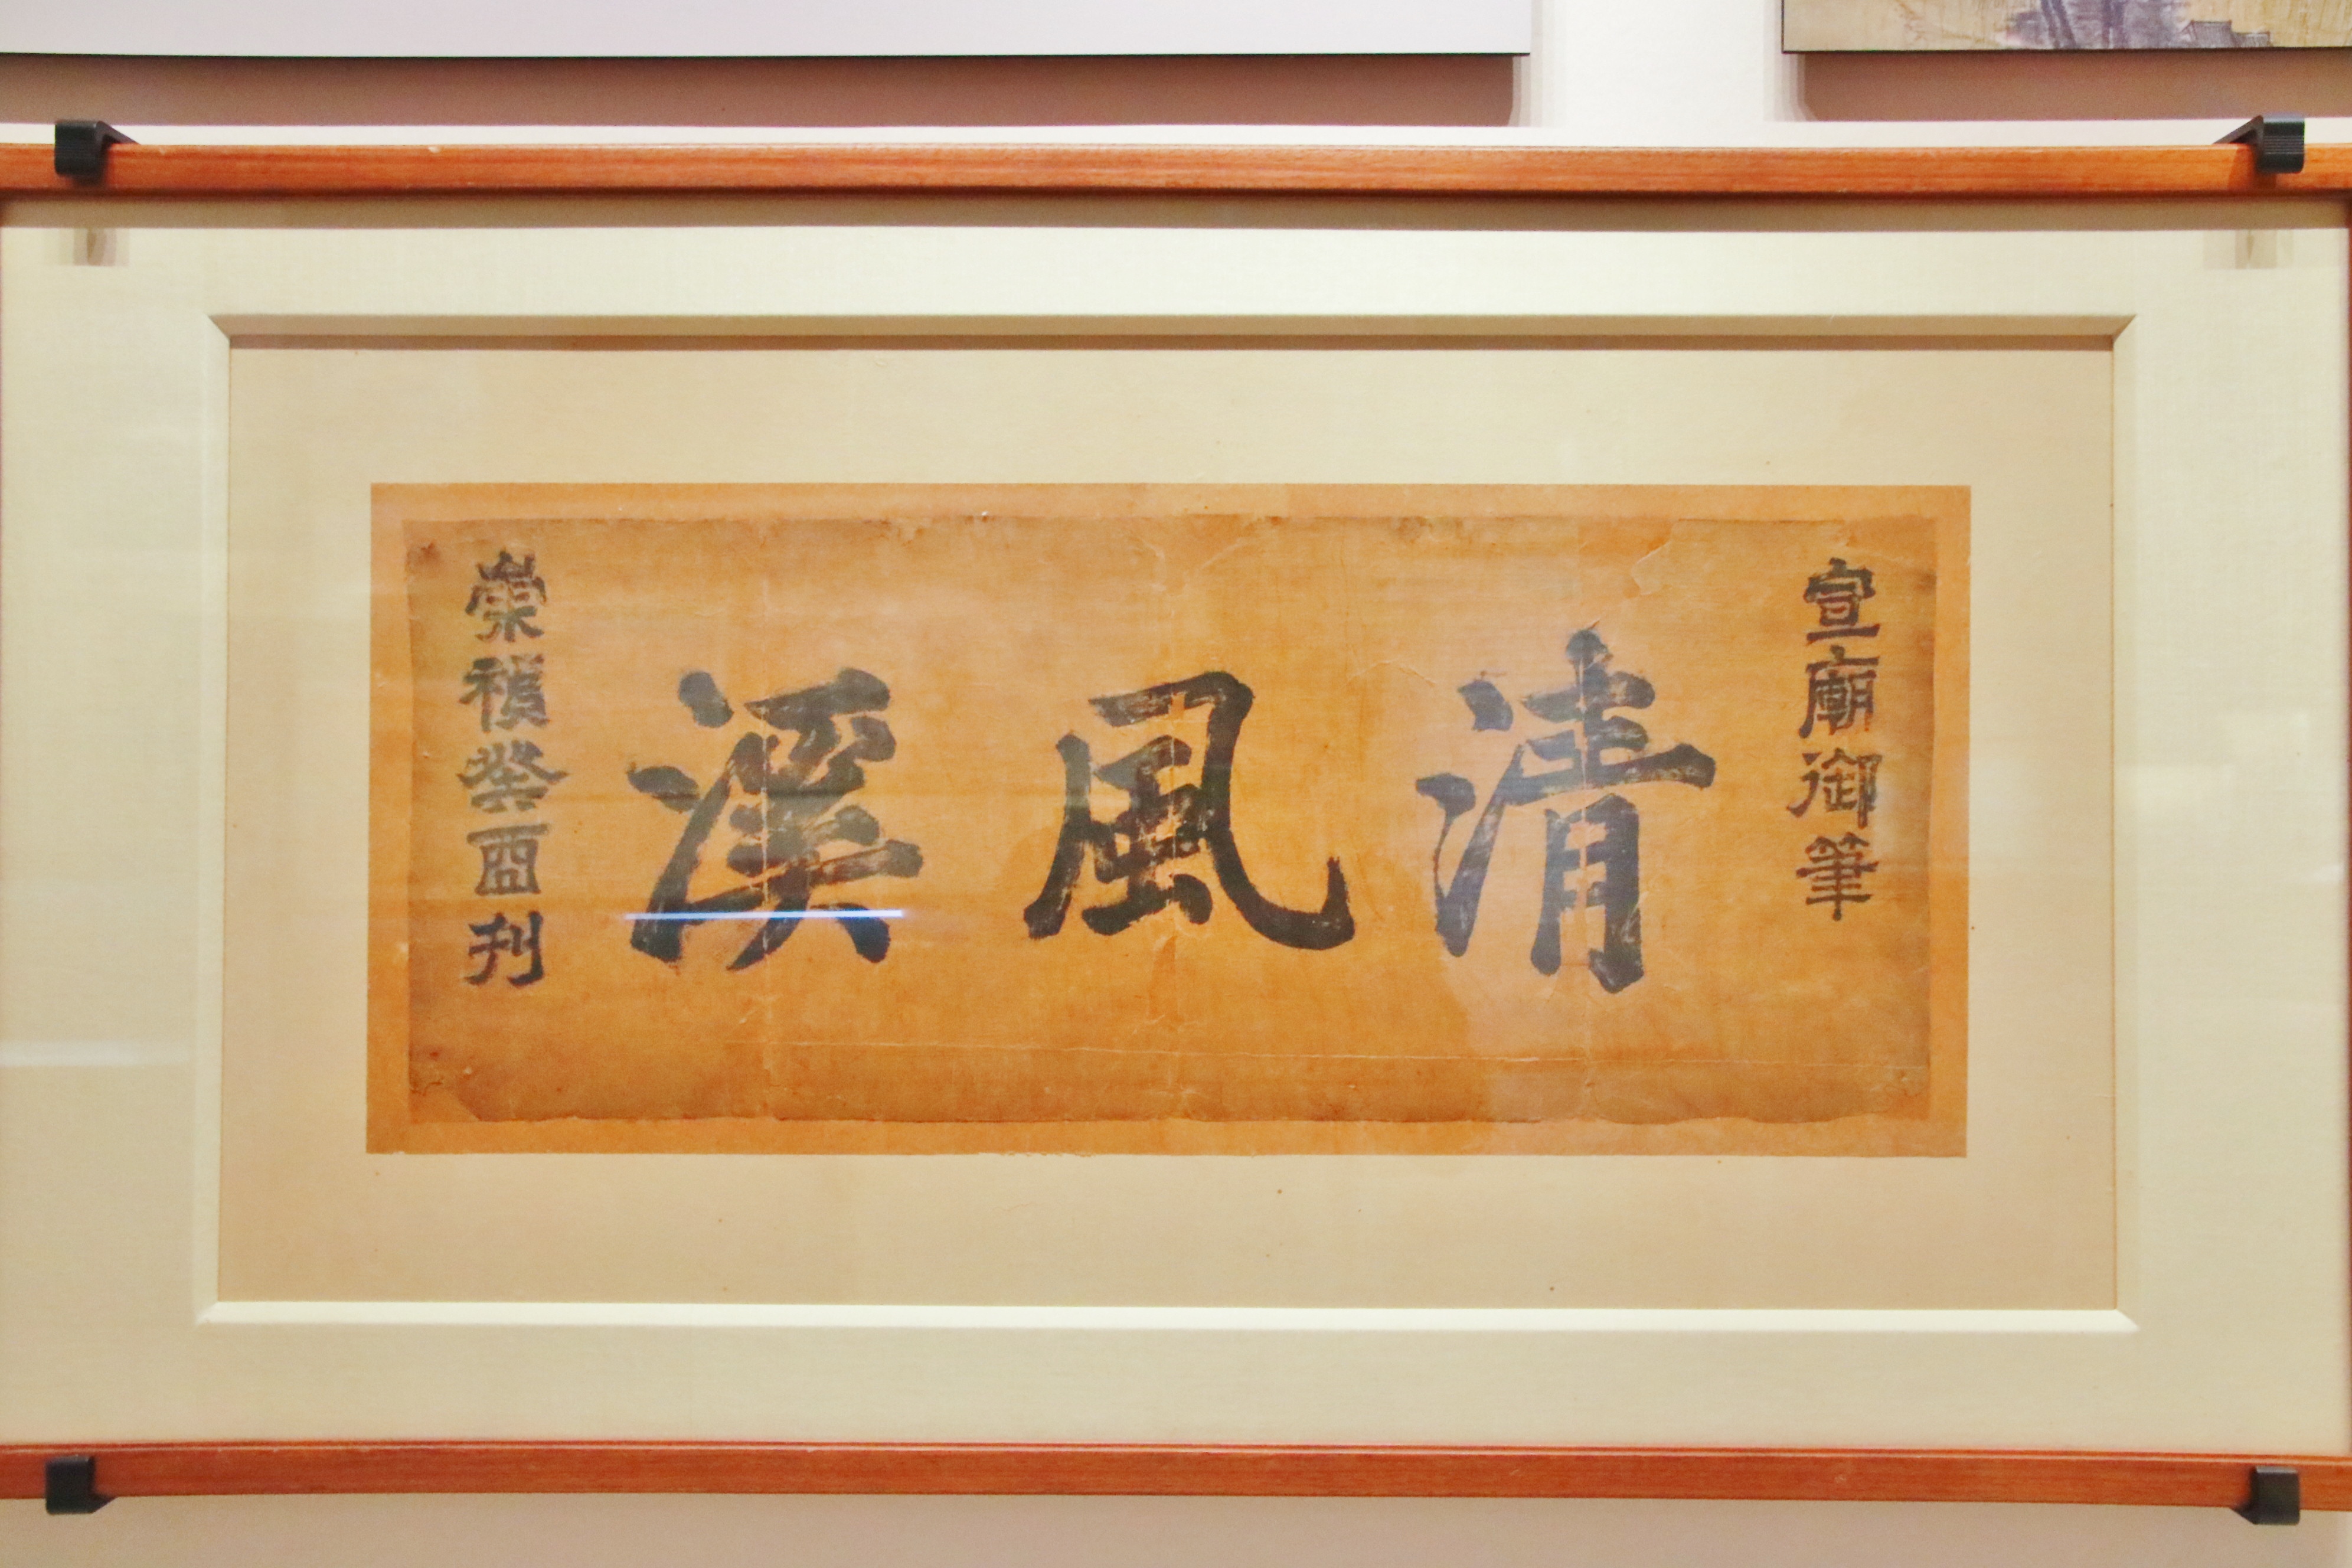 宣廟御筆
清風溪
崇禎癸酉刋